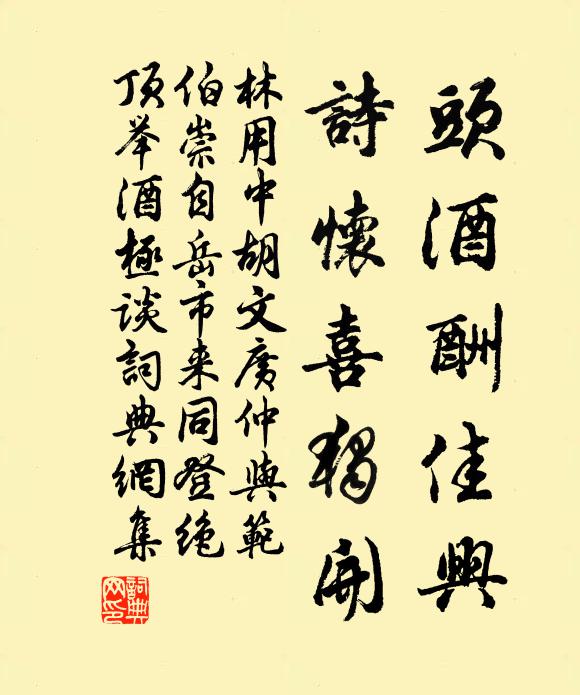 頭酒酬佳興
詩懷喜獨開
林用中胡文廣仲與範
伯崇自岳市来同登绝
頂举酒極谈詞典網集
詞典網印